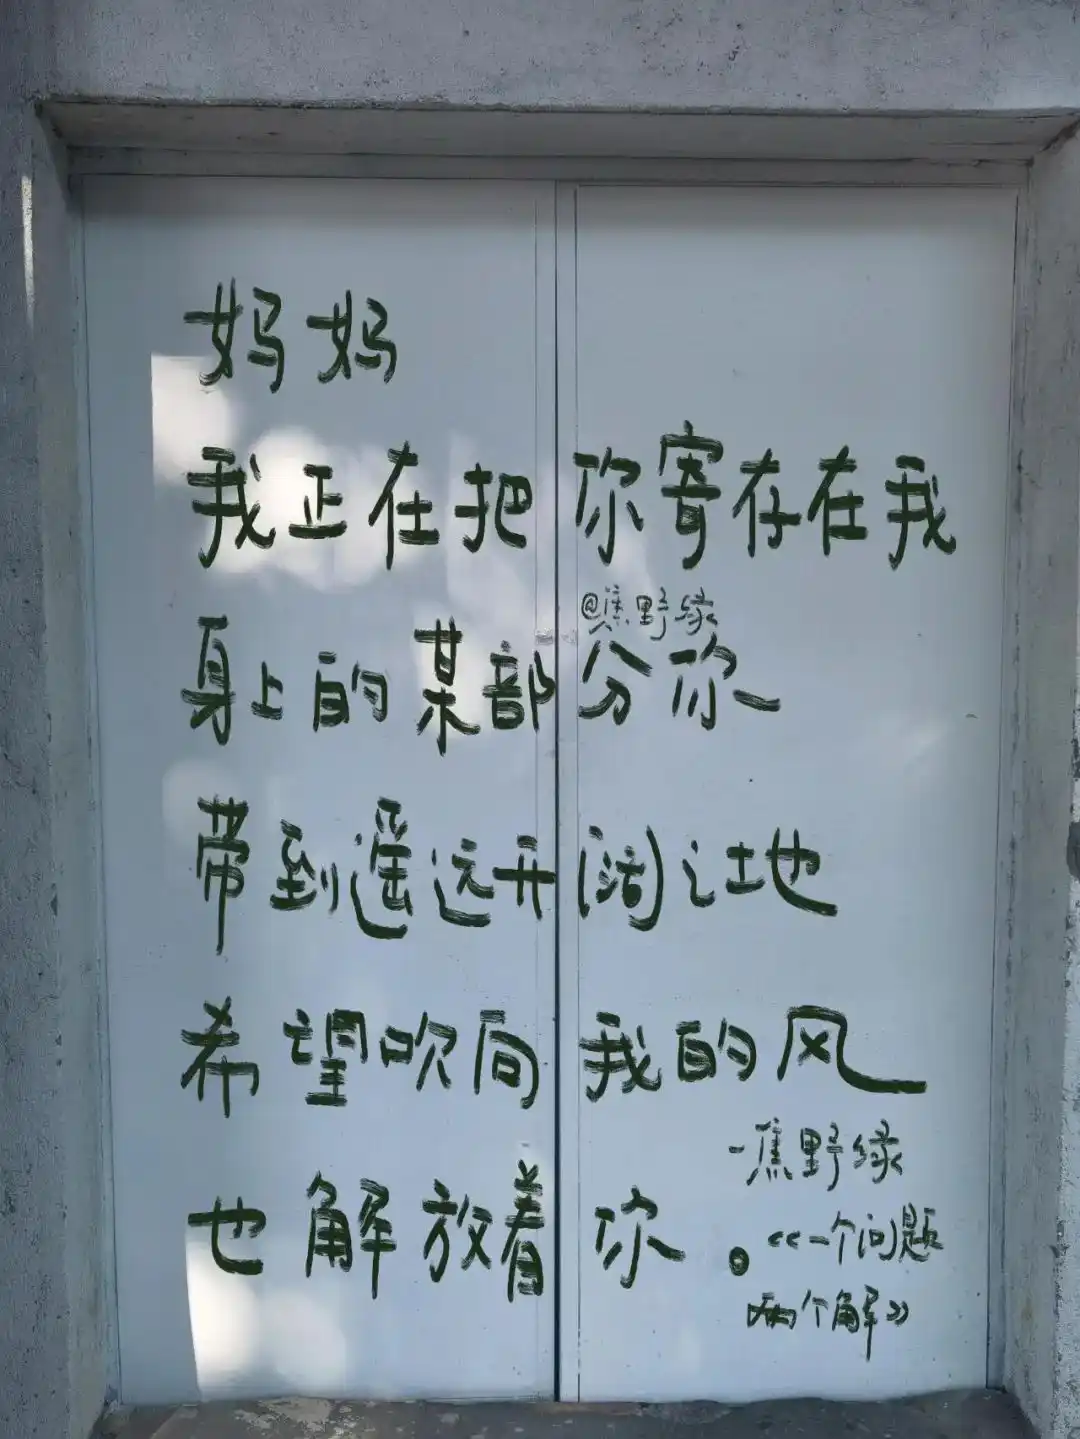 妈妈
我正在把你寄存在我
@焦野绿
身上的某部分你
带到遥远开阔之地
希望吹向我的风
也解放着你。
-焦野绿
《一个问题
两个解》